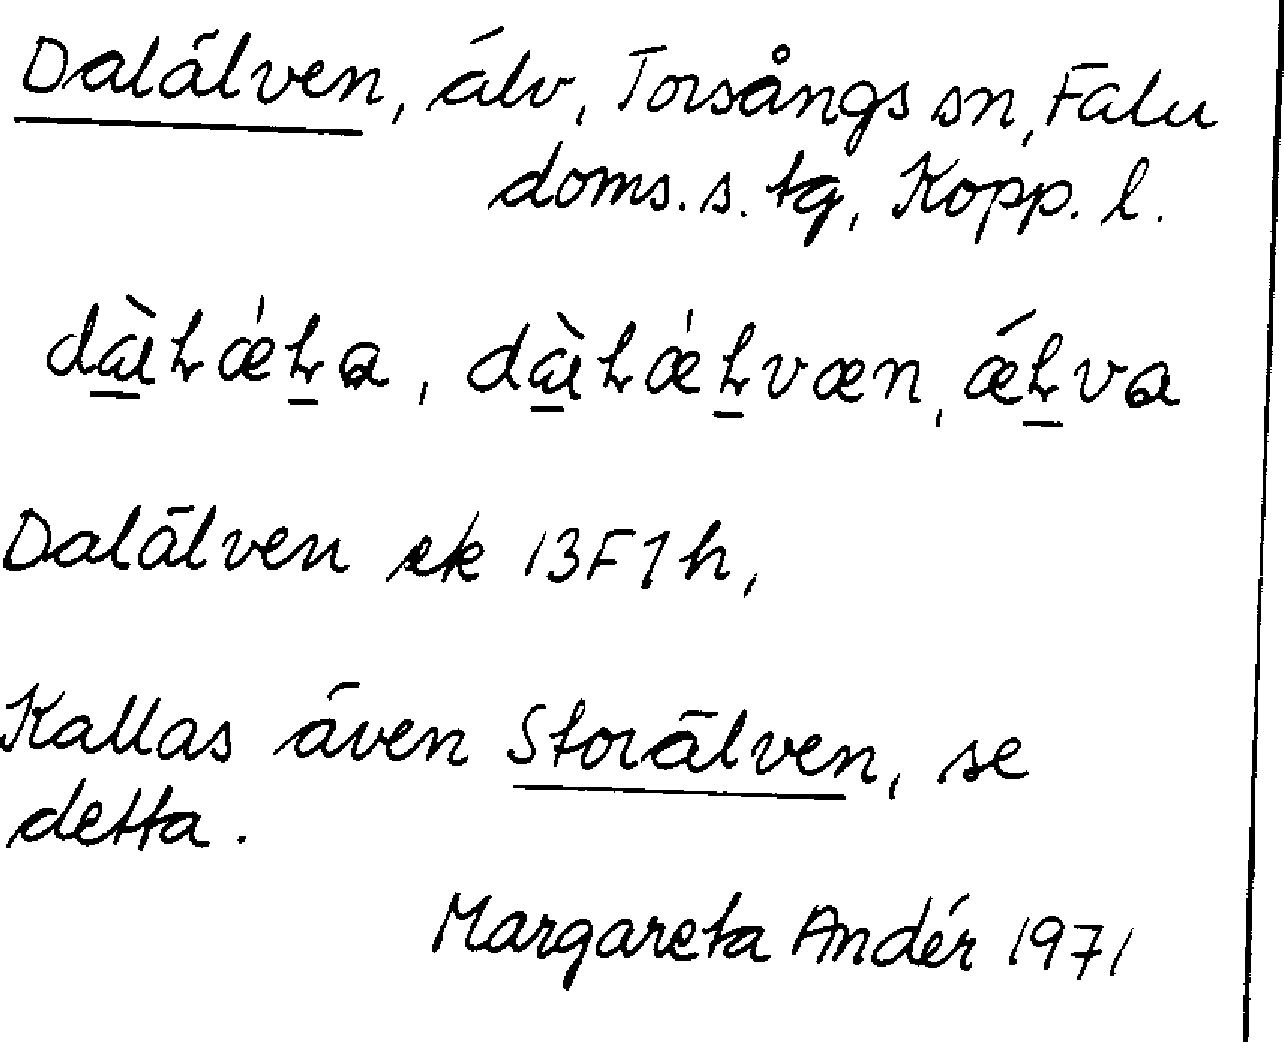 Dalälven, älv, Torsångs sn, Falu
doms. s. tg, Kopp. l.
Dalälven ek 13F1h,
Kallas även Storälven, se
detta.
Margareta Andér 1971